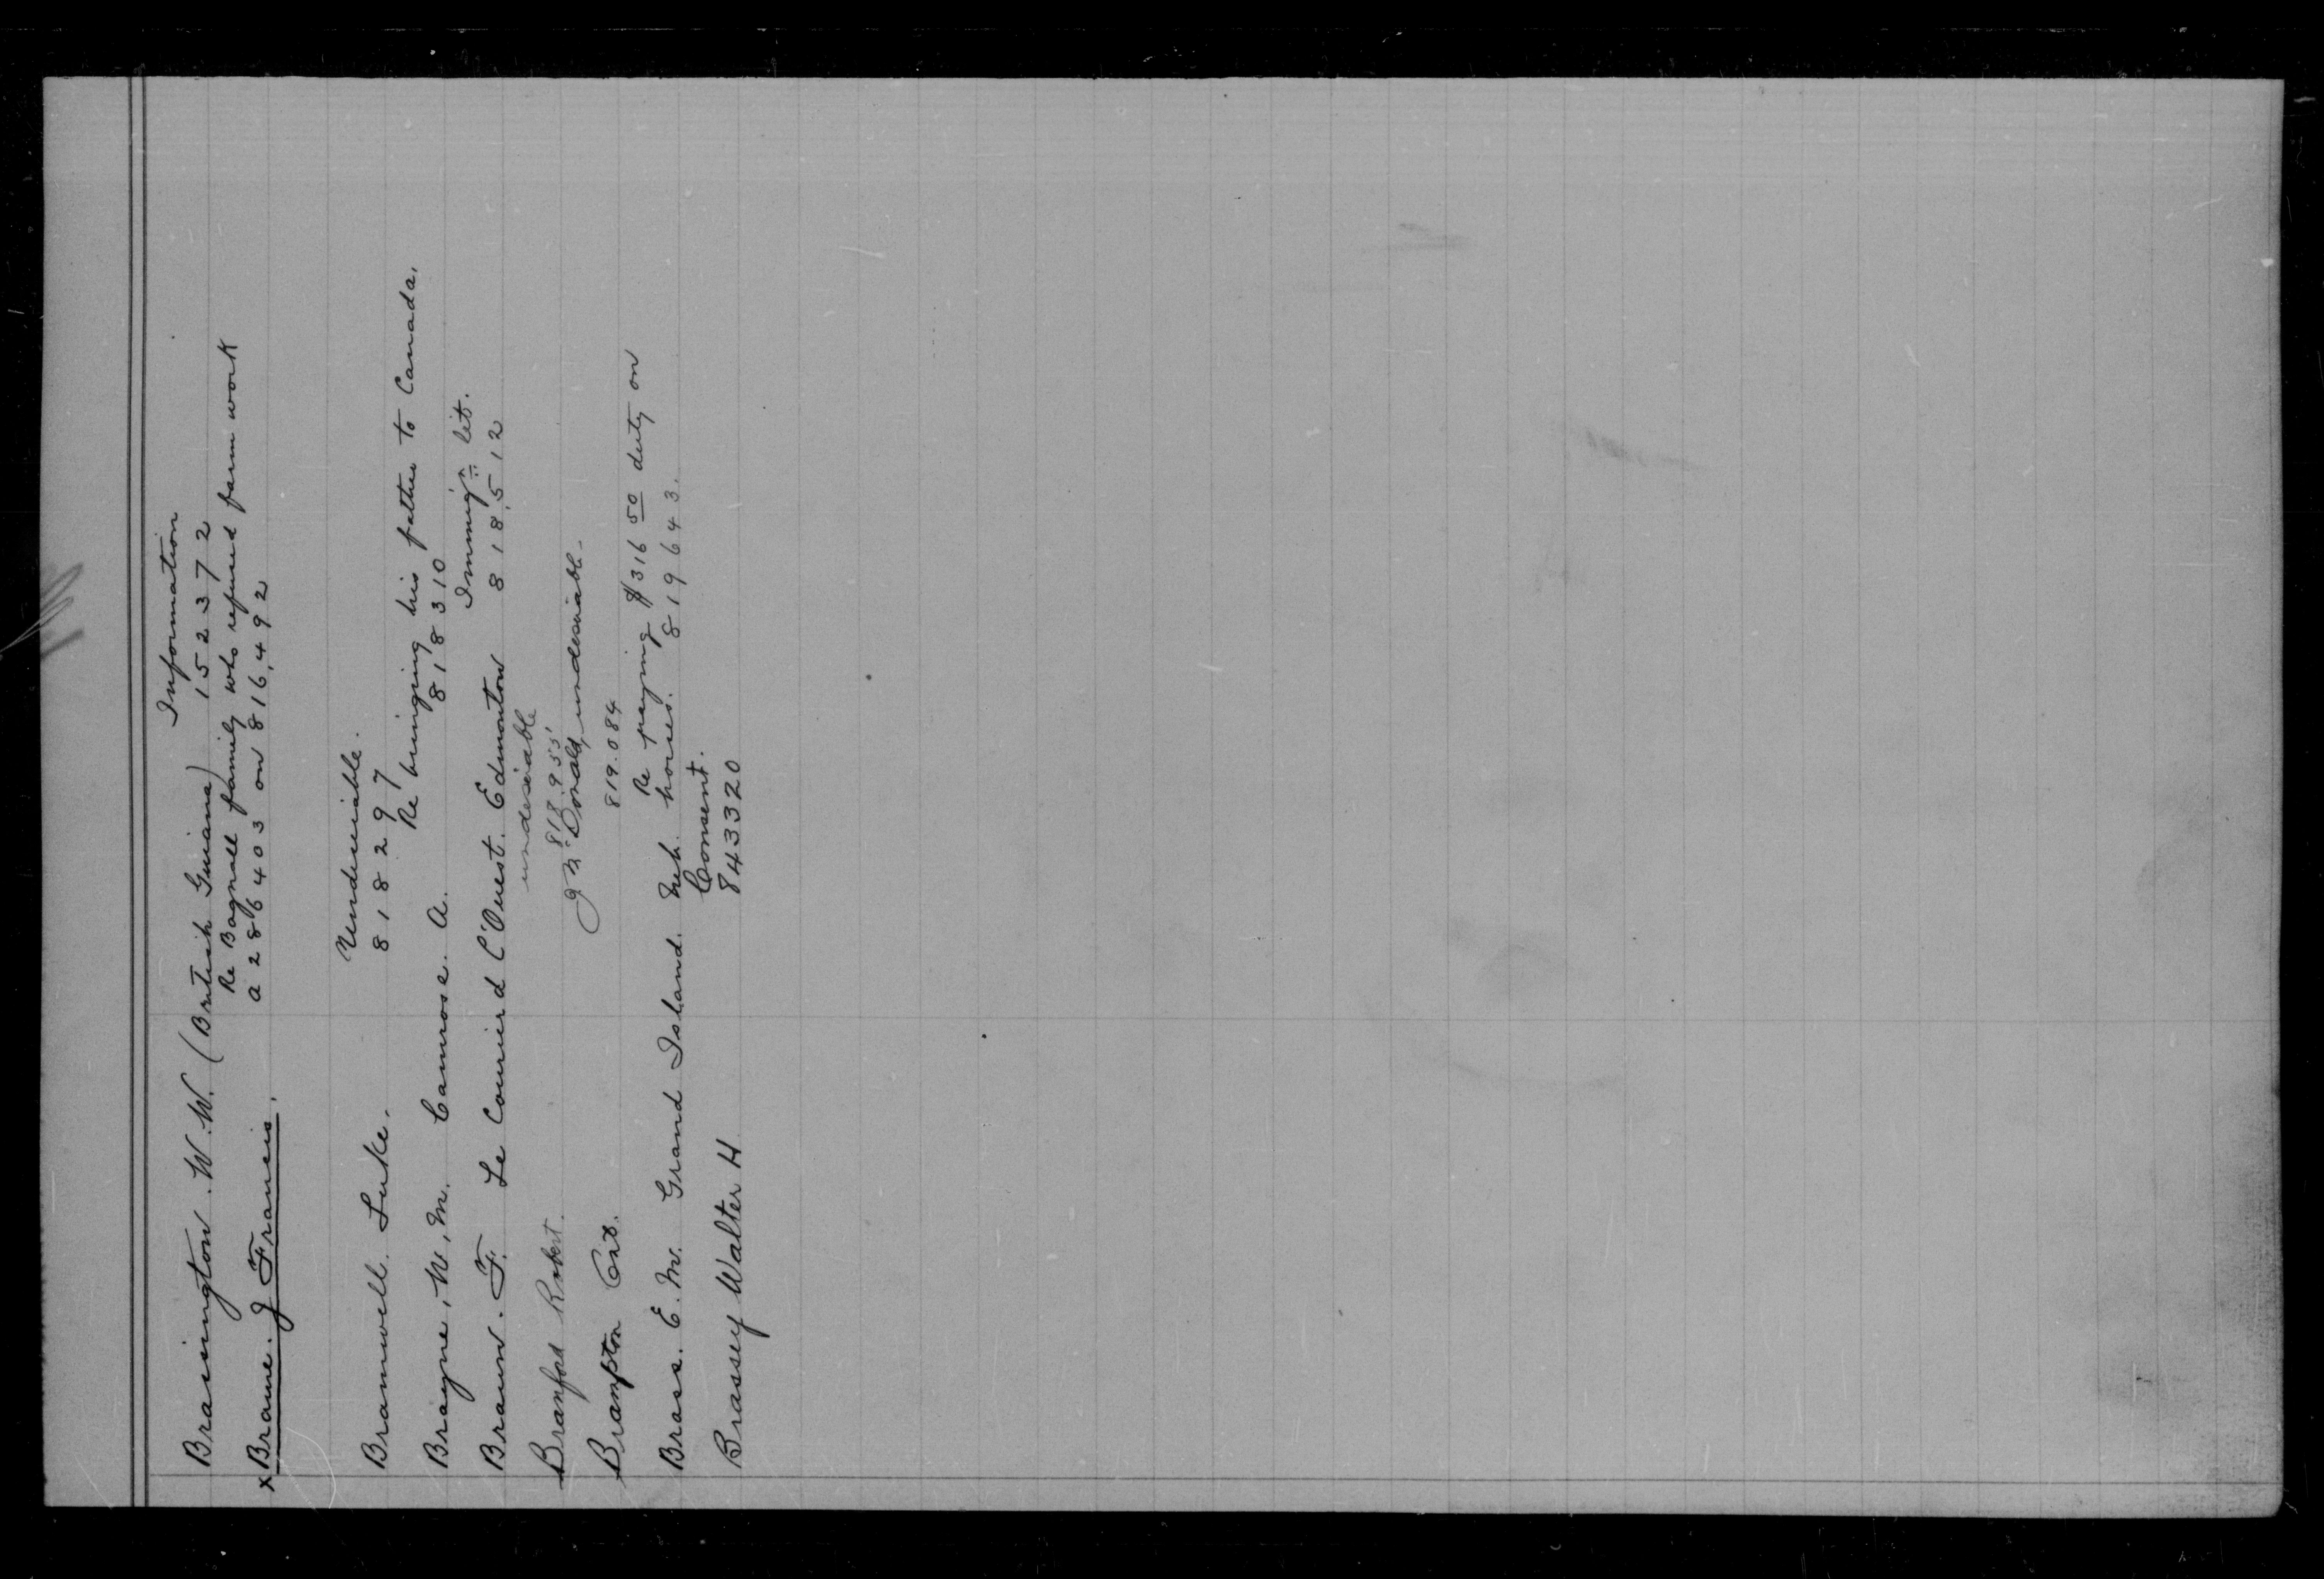 Information
Braington. W. W. (British Guiana) 152372
Re Bagnall family who refused farm work
x Braure. J Francis. a 286403 on 816,492
Undesirable.
Bramwell. Luke. 818297
Re bringing his father to Canada.
Brayne, W, M. Camrose. A. 818310
Immign lit.
Braun. F. Le Courier d L'Ouest. Edmonton 818,512
undesirable
Branford Robert. 818.955
J McDonald, undesirable-
Brampton Ont. 819.084
Re paying $316 50 duty on
Brass. E. M. Grand Island. Neb. horses. 819643.
Consent.
Brassey Walter H 843320